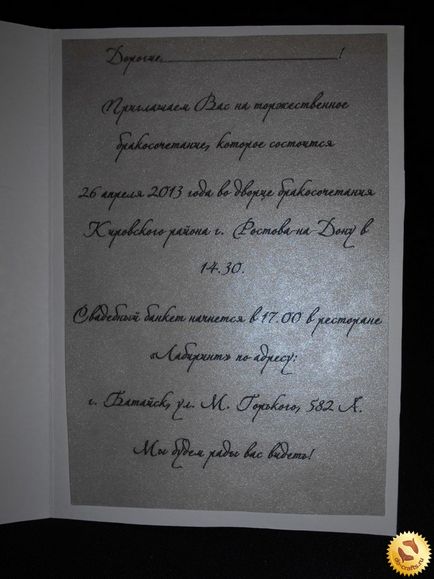 Дорогие______________________!
Приглашаем Вас на торжественное
бракосочетание, которое состоится
26 апреля 2013 года во дворце бракосочетания
Кировского района г. Ростова-на-Дону в
14.30.
Свадебный банкет начнется в 17.00 в ресторане
«Лабиринт» по адресу:
г. Батайск, ул. М. Горького, 582 А.
Мы будем рады вас видеть!